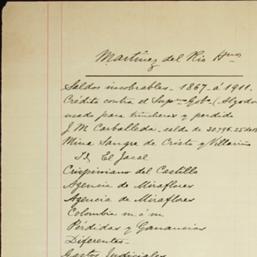 Martinez del Rio Hnos
Saldos incobrables - 1867 á 1911.
Crédito contra el Supmo Gobo (Algodon
usado para trincheras y perdido
J M Carballeda saldo de
Mina Sangre de Cristo y Villarino
Id. El Jacal
Crispiniano del Castillo
Agencia de Miraflores
Agencia de Miraflores
Colombres m. á m.
Pérdidas y Ganancias
Diferentes -
Gastos Judiciales